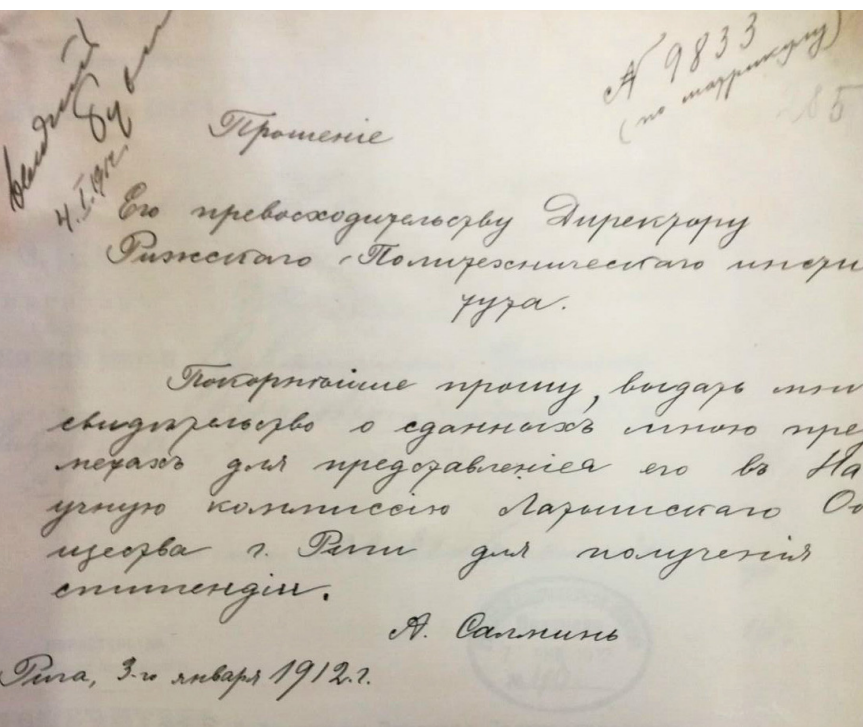 № 9833
(по матрикулу)
285
4.I.1912.
Прошеніе
Его превосходительству Директору
Рижскаго Политехническаго инсти
тута.
Покорнѣйше прошу, выдать мнѣ
свидѣтельство о сданныхъ мною пред
метахъ для представленіея его въ На
учную коммиссію Латышскаго Об
щества г. Риги для полученія
стипендіи.
А. Салнинь
Рига, 3-го января 1912.г.